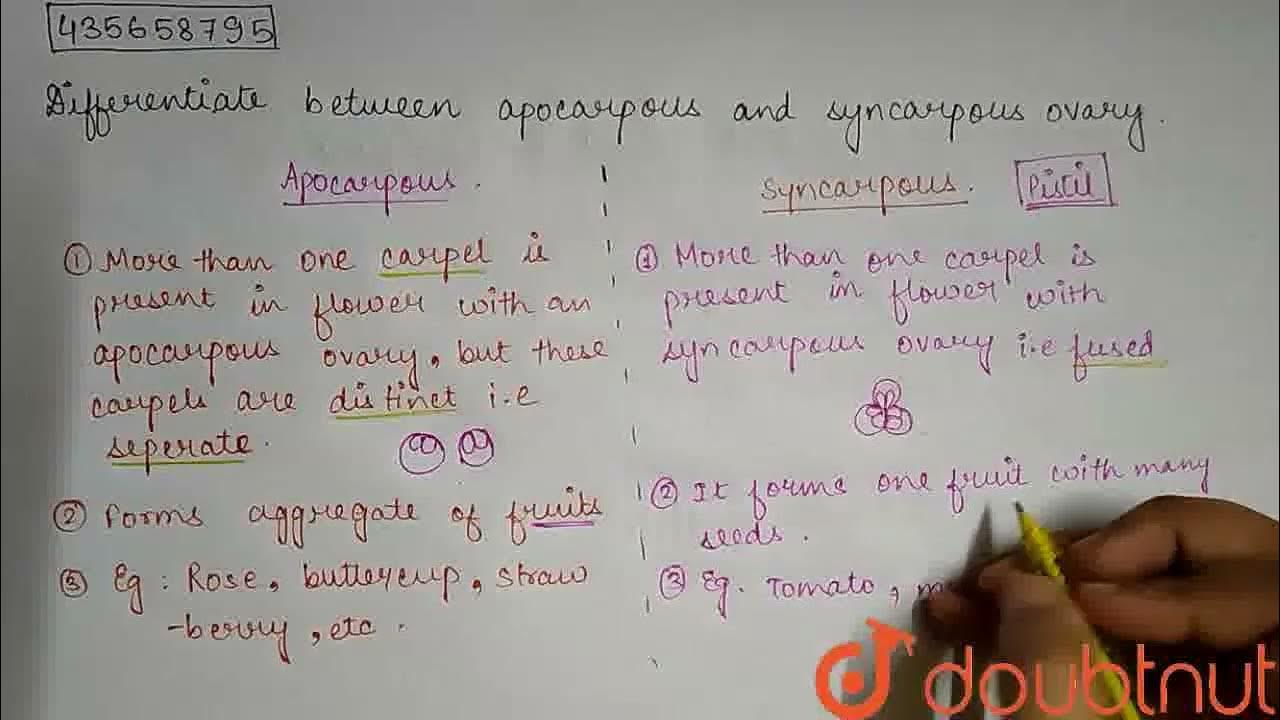 435658795
Differentiate between apocarpous and syncarpous ovary.
Apocarpous.
① More than one carpel is
present in flower with an
apocarpous ovary, but these
carpels are distinct i.e
seperate.
② Forms aggregate of fruits
③ Eg : Rose, buttercup, straw
-berry, etc.
Syncarpous. Pistil
① More than one carpel is
present in flower with
syncarpous ovary i.e fused
② It forms one fruit with many
seeds.
③ Eg. Tomato,
doubtnut